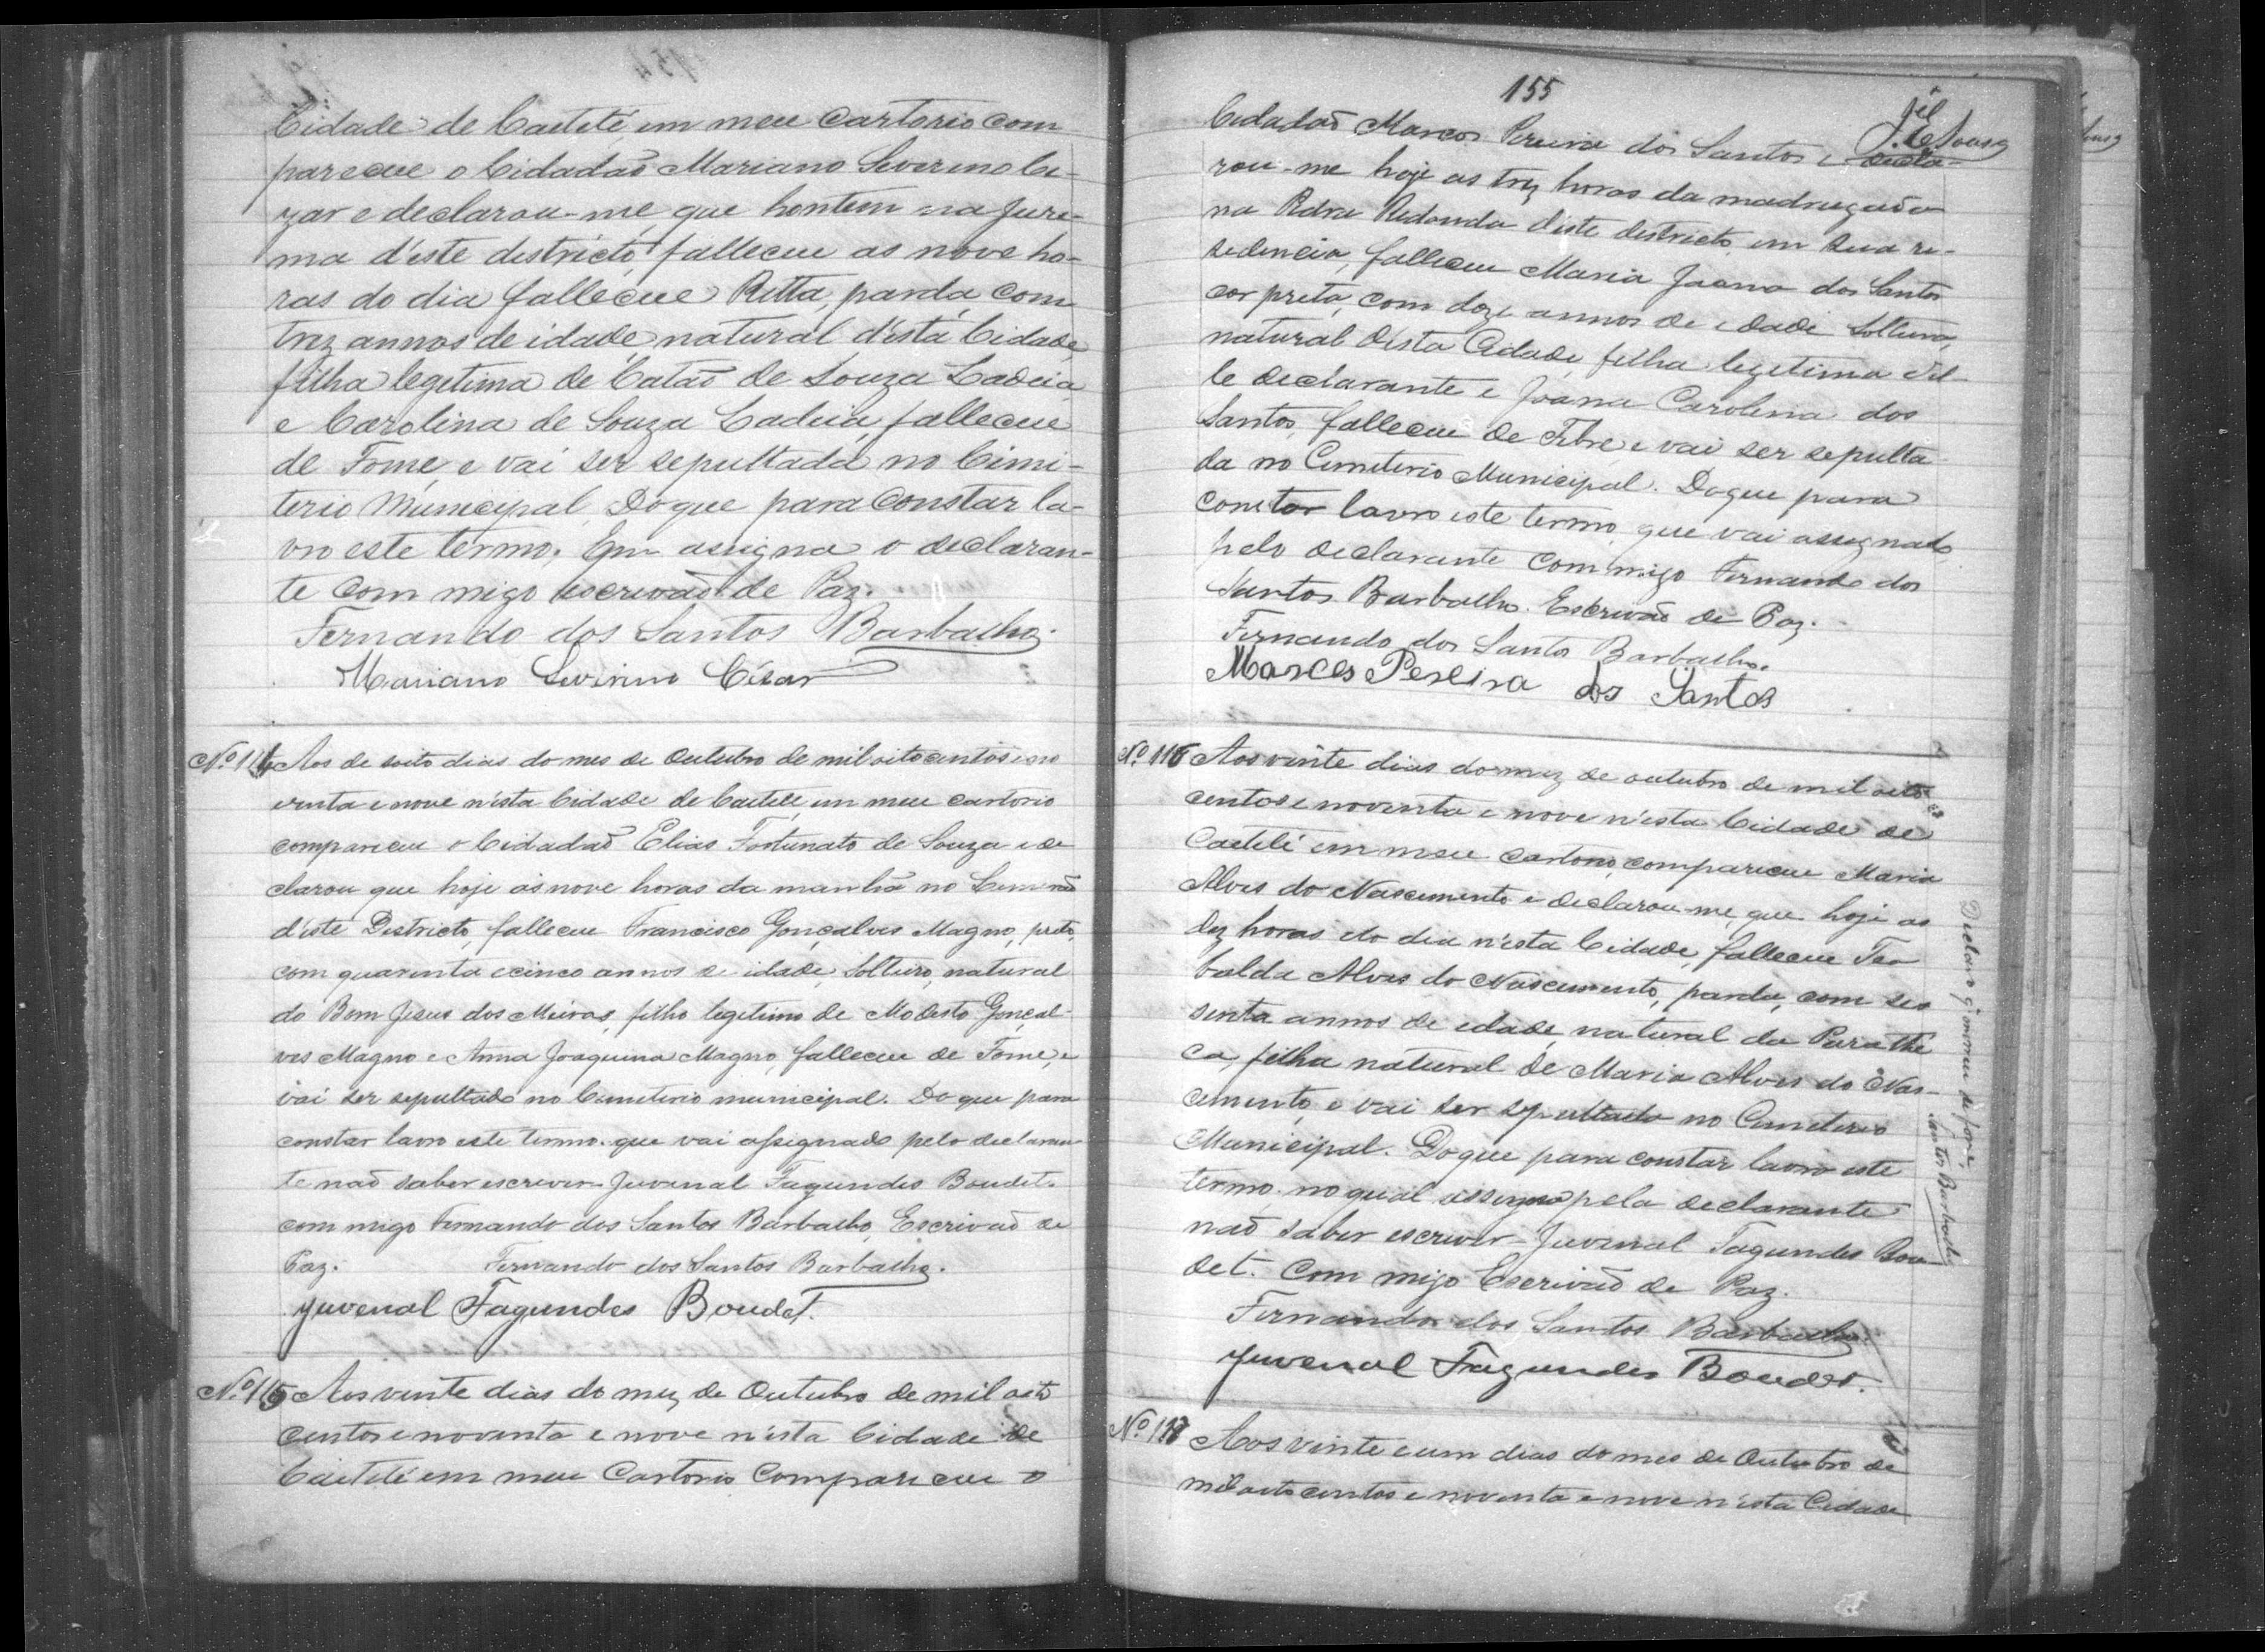 Cidade de Caetité em meu Cartorio com
pareceu o Cidadão Mariano Severino Ce-
zar e declarou-me, que hontem na Jure-
ma d'éste districto falleceu as nove ho-
ras do dia falleceu Ritta, parda, com
trez annos de idade, natural d'ésta Cidade,
filha legitima de Catão de Souza Ladeia
e Carolina de Souza Ladeia, falleceu
de Fome, e vai ser sepultada no Cimi-
terio Municipal. Do que para Constar la-
vro este termo. Em assigna o declaran-
te com migo escrivão de Paz.
Fernando dos Santos Barbalho.
Mariano Sevirino Cézar
Nº 114 Aos de soito dias do mes de Outubro de mil oito centos e no
venta e nove n'ésta Cidade de Caetité, em meu cartorio
compareceu o Cidadão Elias Fortunato de Souza e de
clarou que hoje ás nove horas da manhã no
d'éste Districto, falleceu Francisco Gonçalves Magno, preto,
com quarenta e cinco annos de idade, Solteiro, natural
do Bom Jesus dos Meiras, filho legitimo de Modesto Gonçal-
ves Magno e Anna Joaquina Magno, falleceu de Fome, e
vai ser sepultado no Cemiterio municipal. Do que para
constar lavro este termo. que vai assignado pelo declaran-
te não saber escrever Juvenal Fagundes Boudet.
com migo Fernando dos Santos Barbalho, Escrivão de
Paz. Fernando dos Santos Barbalho.
Juvenal Fagundes Boudet.
Nº 115 Aos vinte dias do mez de Outubro de mil oito
centos e noventa e nove n'ésta Cidade de
Caetité em meu Cartorio Compareceu o
155
J. E. Souza
Cidadão Marcos Pereira dos Santos e decla-
rou-me hoje as trez horas da madrugada
na Pedra Redonda d'éste districto em sua re-
sidencia, falleceu Maria Joana dos Santos
cor preta, com doze annos de idade Solteira,
natural désta Cidade, filha legitima del-
le declarante e Joana Carolina dos
Santos, falleceu de Febre e vai ser sepulta
da no Cemiterio Municipal. Do que para
constar lavro este termo, que vai assignado
pelo declarante Com migo Fernando dos
Santos Barbalho. Escrivão de Paz.
Fernando dos Santos Barbalho.
Marcos Pereira dos Santos
Nº 116 Aos vinte dias do mez de outubro de mil oito
centos e noventa e nove n'ésta Cidade de
Caetité em meu cartorio, compareceu Maria
Alves do Nascimento e declarou-me, que hoje as
dez horas do dia n'ésta Cidade, falleceu Teo
balda Alves do Nascimento, parda, com ses
senta annos de edade, natural da Parathé
ca, filha natural de Maria Alves do Nas-
cimento, e vai ser sepultada no Cemiterio
Municipal. Do que para constar lavro este
termo, no qual assigna pela declarante
não saber escrever Juvenal Fagundes Bou
det. Com migo Escrivão de Paz.
Fernando dos Santos Barbalho.
Juvenal Fagundes Boudet.
Declaro q'morreu de fome,
Santos Barbalho
Nº 117 Aos vinte e um dias do mes de Outubro de
mil oito centos e noventa e nove n'ésta Cidade